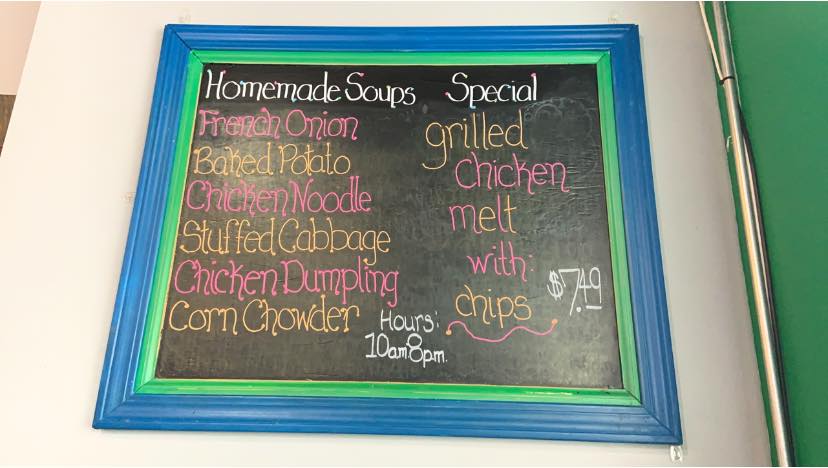 Homemade Soups
French Onion
Baked Potato
Chicken Noodle
Stuffed Cabbage
Chicken Dumpling
Corn Chowder
Hours:
10am8pm.
Special
grilled
Chicken
melt
with:
chips
$7.49